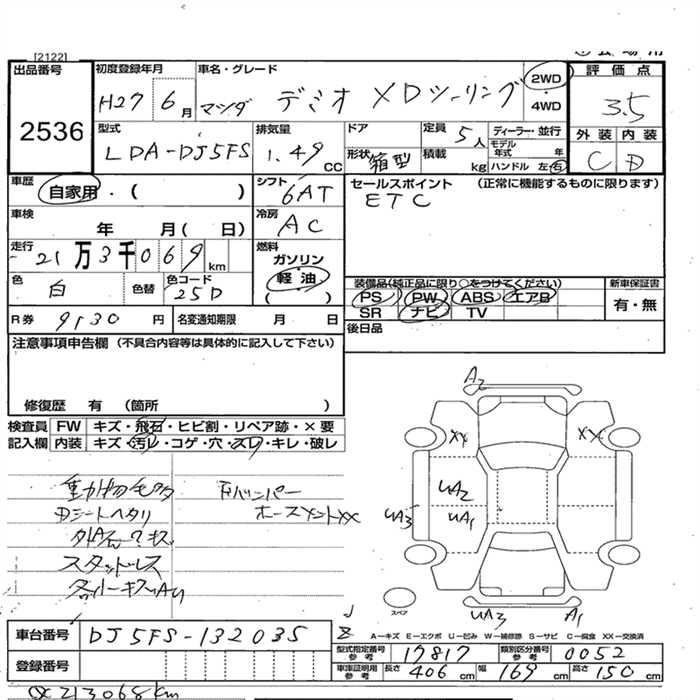 [2122]
出品番号
2536
初度登録年月
H27 6月
車名・グレード
マツダ デミオ XDツーリング
2WD
4WD
評価点
3.5
外装 内装
C D
型式
LDA-DJ5FS
排気量
1.49 CC
ドア
形状 箱型
定員 5人
積載 kg
ディーラー・並行
モデル年式 年
ハンドル 左 右
車歴
自家用・( )
シフト
6AT
セールスポイント (正常に機能するものに限ります)
ETC
車検
年 月( 日)
冷房
AC
走行
21万3千069km
燃料
ガソリン
軽油
( )
色
白
色替
色コード
25D
装備品(純正品に限り○をつけてください)
PS PW ABS エアB
SR ナビ TV
新車保証書
有・無
R券 9130 円
名変通知期限 月 日
後日品
注意事項申告欄 (不具合内容等は具体的に記入して下さい)
修復歴 有 (箇所 )
検査員記入欄
FW キズ・飛石・ヒビ割・リペア跡・×要
内装 キズ・汚レ・コゲ・穴・スレ・キレ・破レ
Dシートヘタリ
スタッドレス
Fバンパー
ホースメントXX
A2
XX XX
UA2
UA3 UA1
UA3 A1
スペア
A−キズ E−エクボ U−凹み W−補修跡 S−サビ C−腐食 XX−交換済
車台番号 DJ5FS-132035
登録番号
型式指定番号 参考 17817
類別区分番号 参考 0052
車庫証明用 参考 長さ 406 cm 幅 169 cm 高さ 150 cm
QC213068km